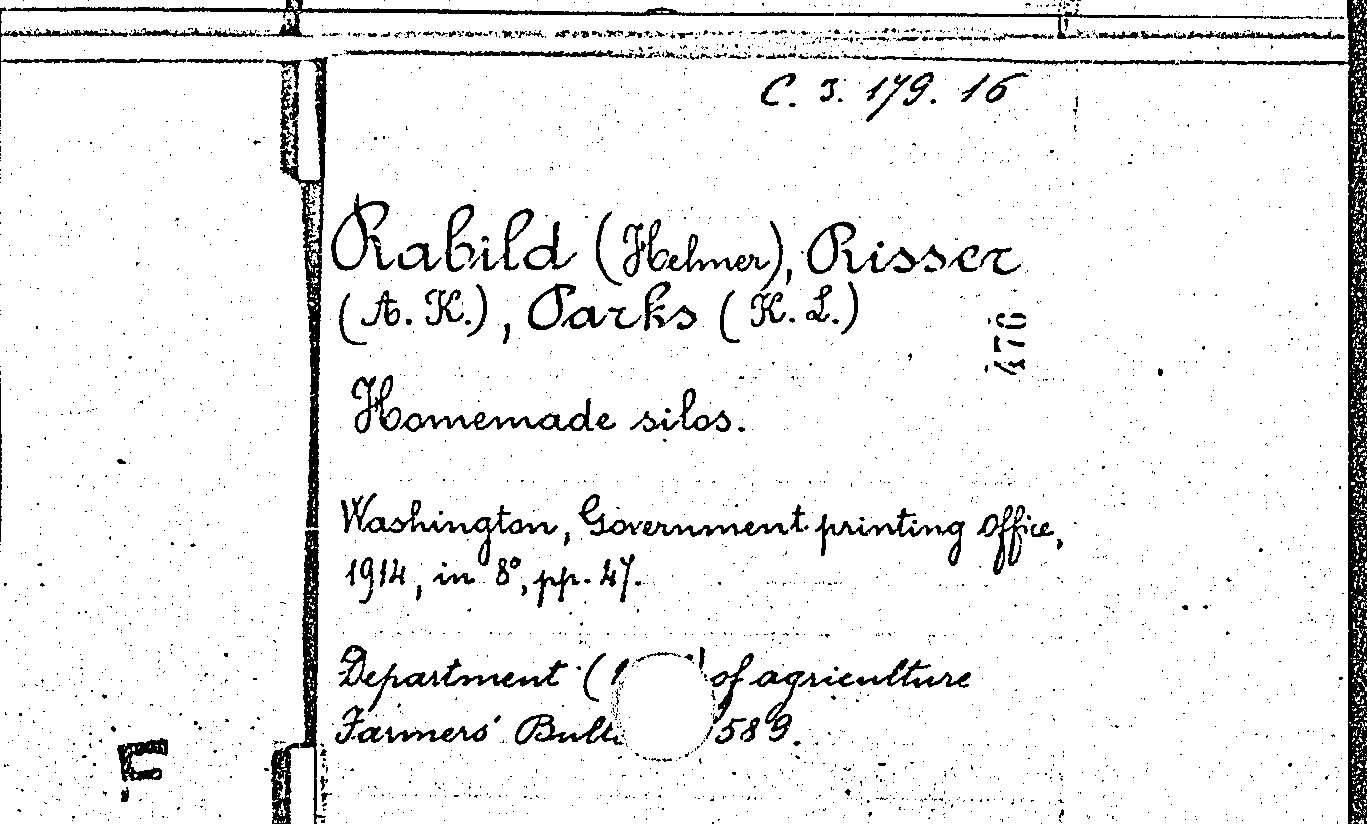 C. 3. 179. 16
Rabild (Helmer), Risser
(A. K.), Parks (K. L.)
476
Homemade silos.
Washington, Government printing office,
1914, in 8°, pp. 47.
Department ( of agriculture
Farmers' 589.
F